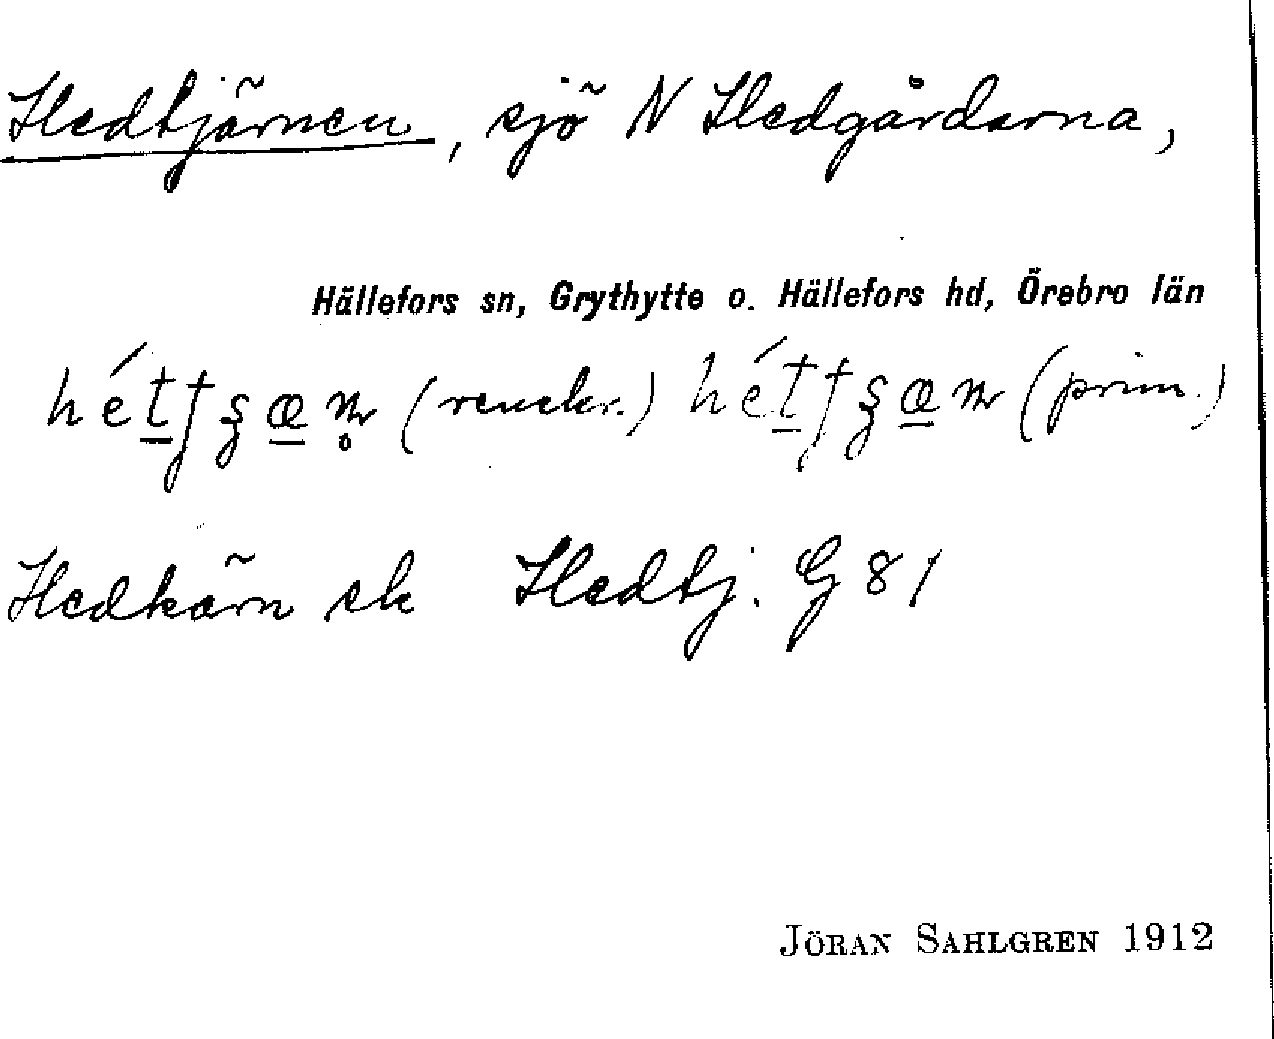 Hedtjärnen, sjö N Hedgårdarna,
Hällefors sn, Grythytte o. Hällefors hd, Örebro län
(renskr.) (prim.)
Hedkärn sk Hedtj. G 81
JÖRAN SAHLGREN 1912